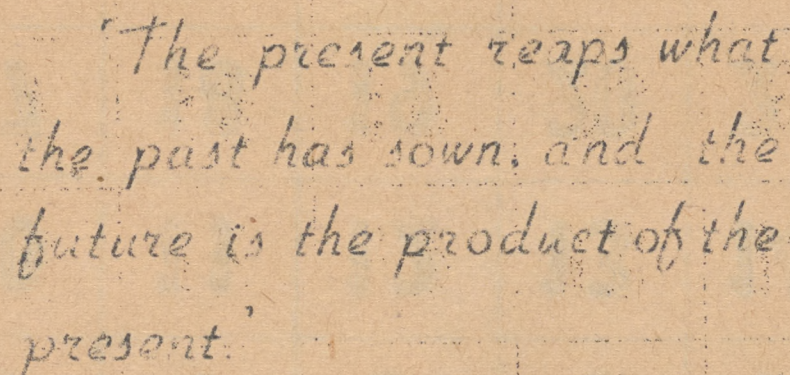 'The present reaps what
the past has sown, and the
future is the product of the
present.'